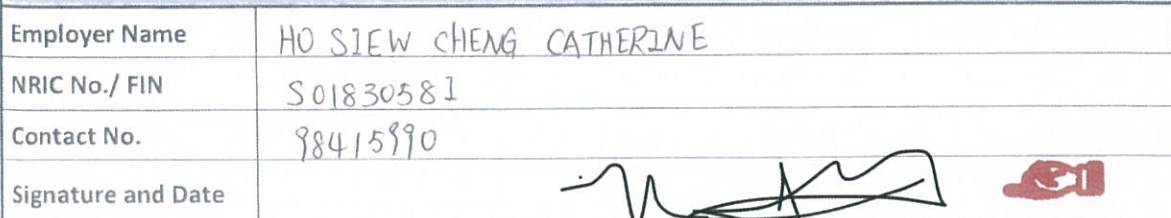 Employer Name HO SIEW CHENG CATHERINE
NRIC No./ FIN S0183058I
Contact No. 98415990
Signature and Date